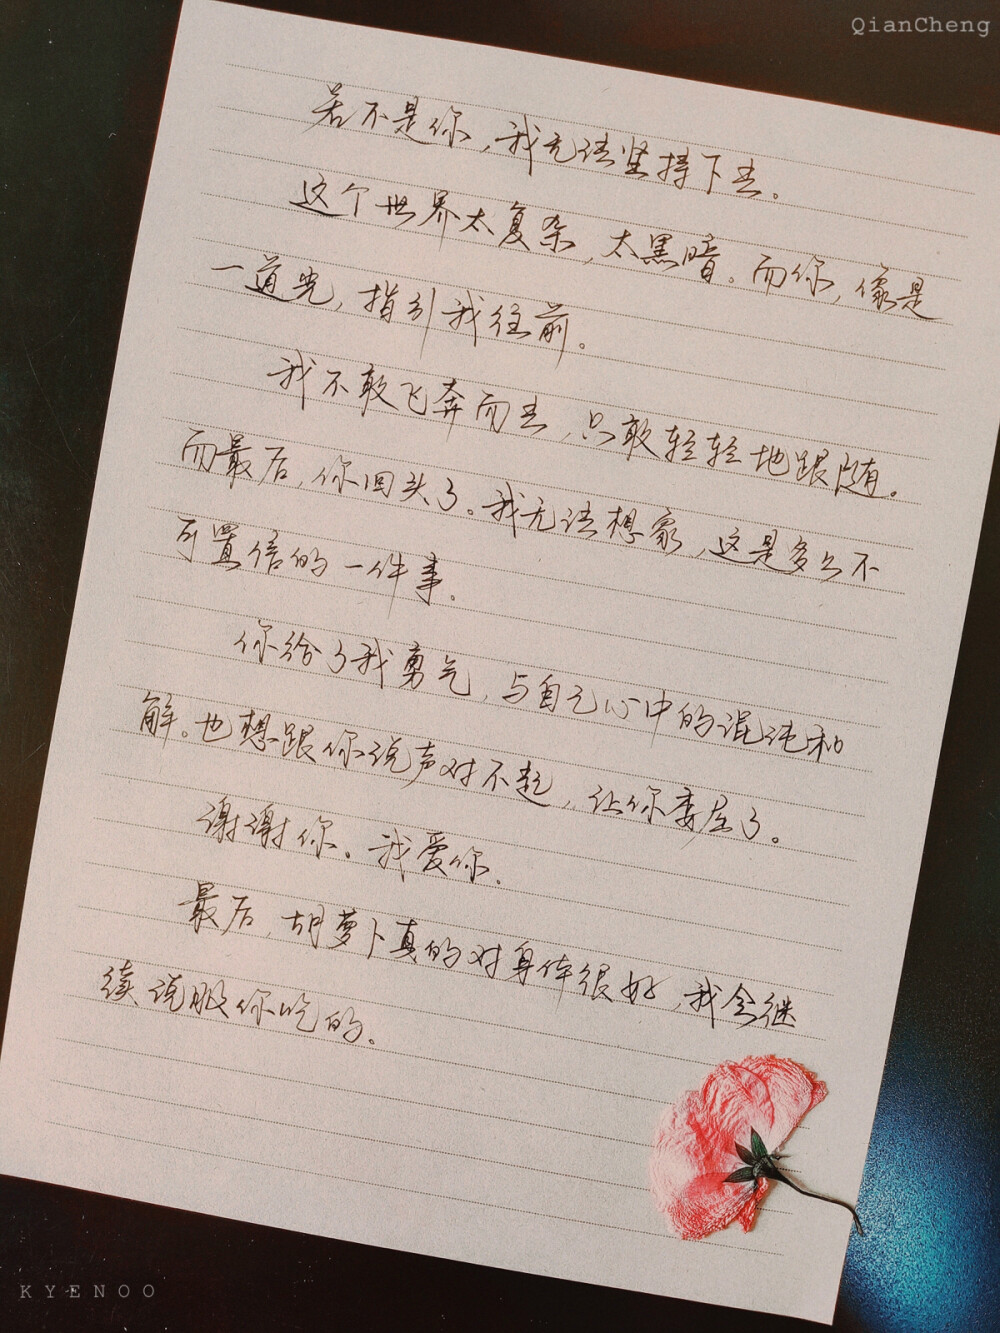 QianCheng
若不是你，我无法坚持下去。
这个世界太复杂，太黑暗。而你，像是
一道光，指引我往前。
我不敢飞奔而去，只敢轻轻地跟随。
而最后，你回头了。我无法想象，这是多么不
可置信的一件事。
你给了我勇气，与自己心中的混沌和
解。也想跟你说声对不起，让你委屈了。
谢谢你。我爱你。
最后，胡萝卜真的对身体很好，我会继
续说服你吃的。
KYENOO